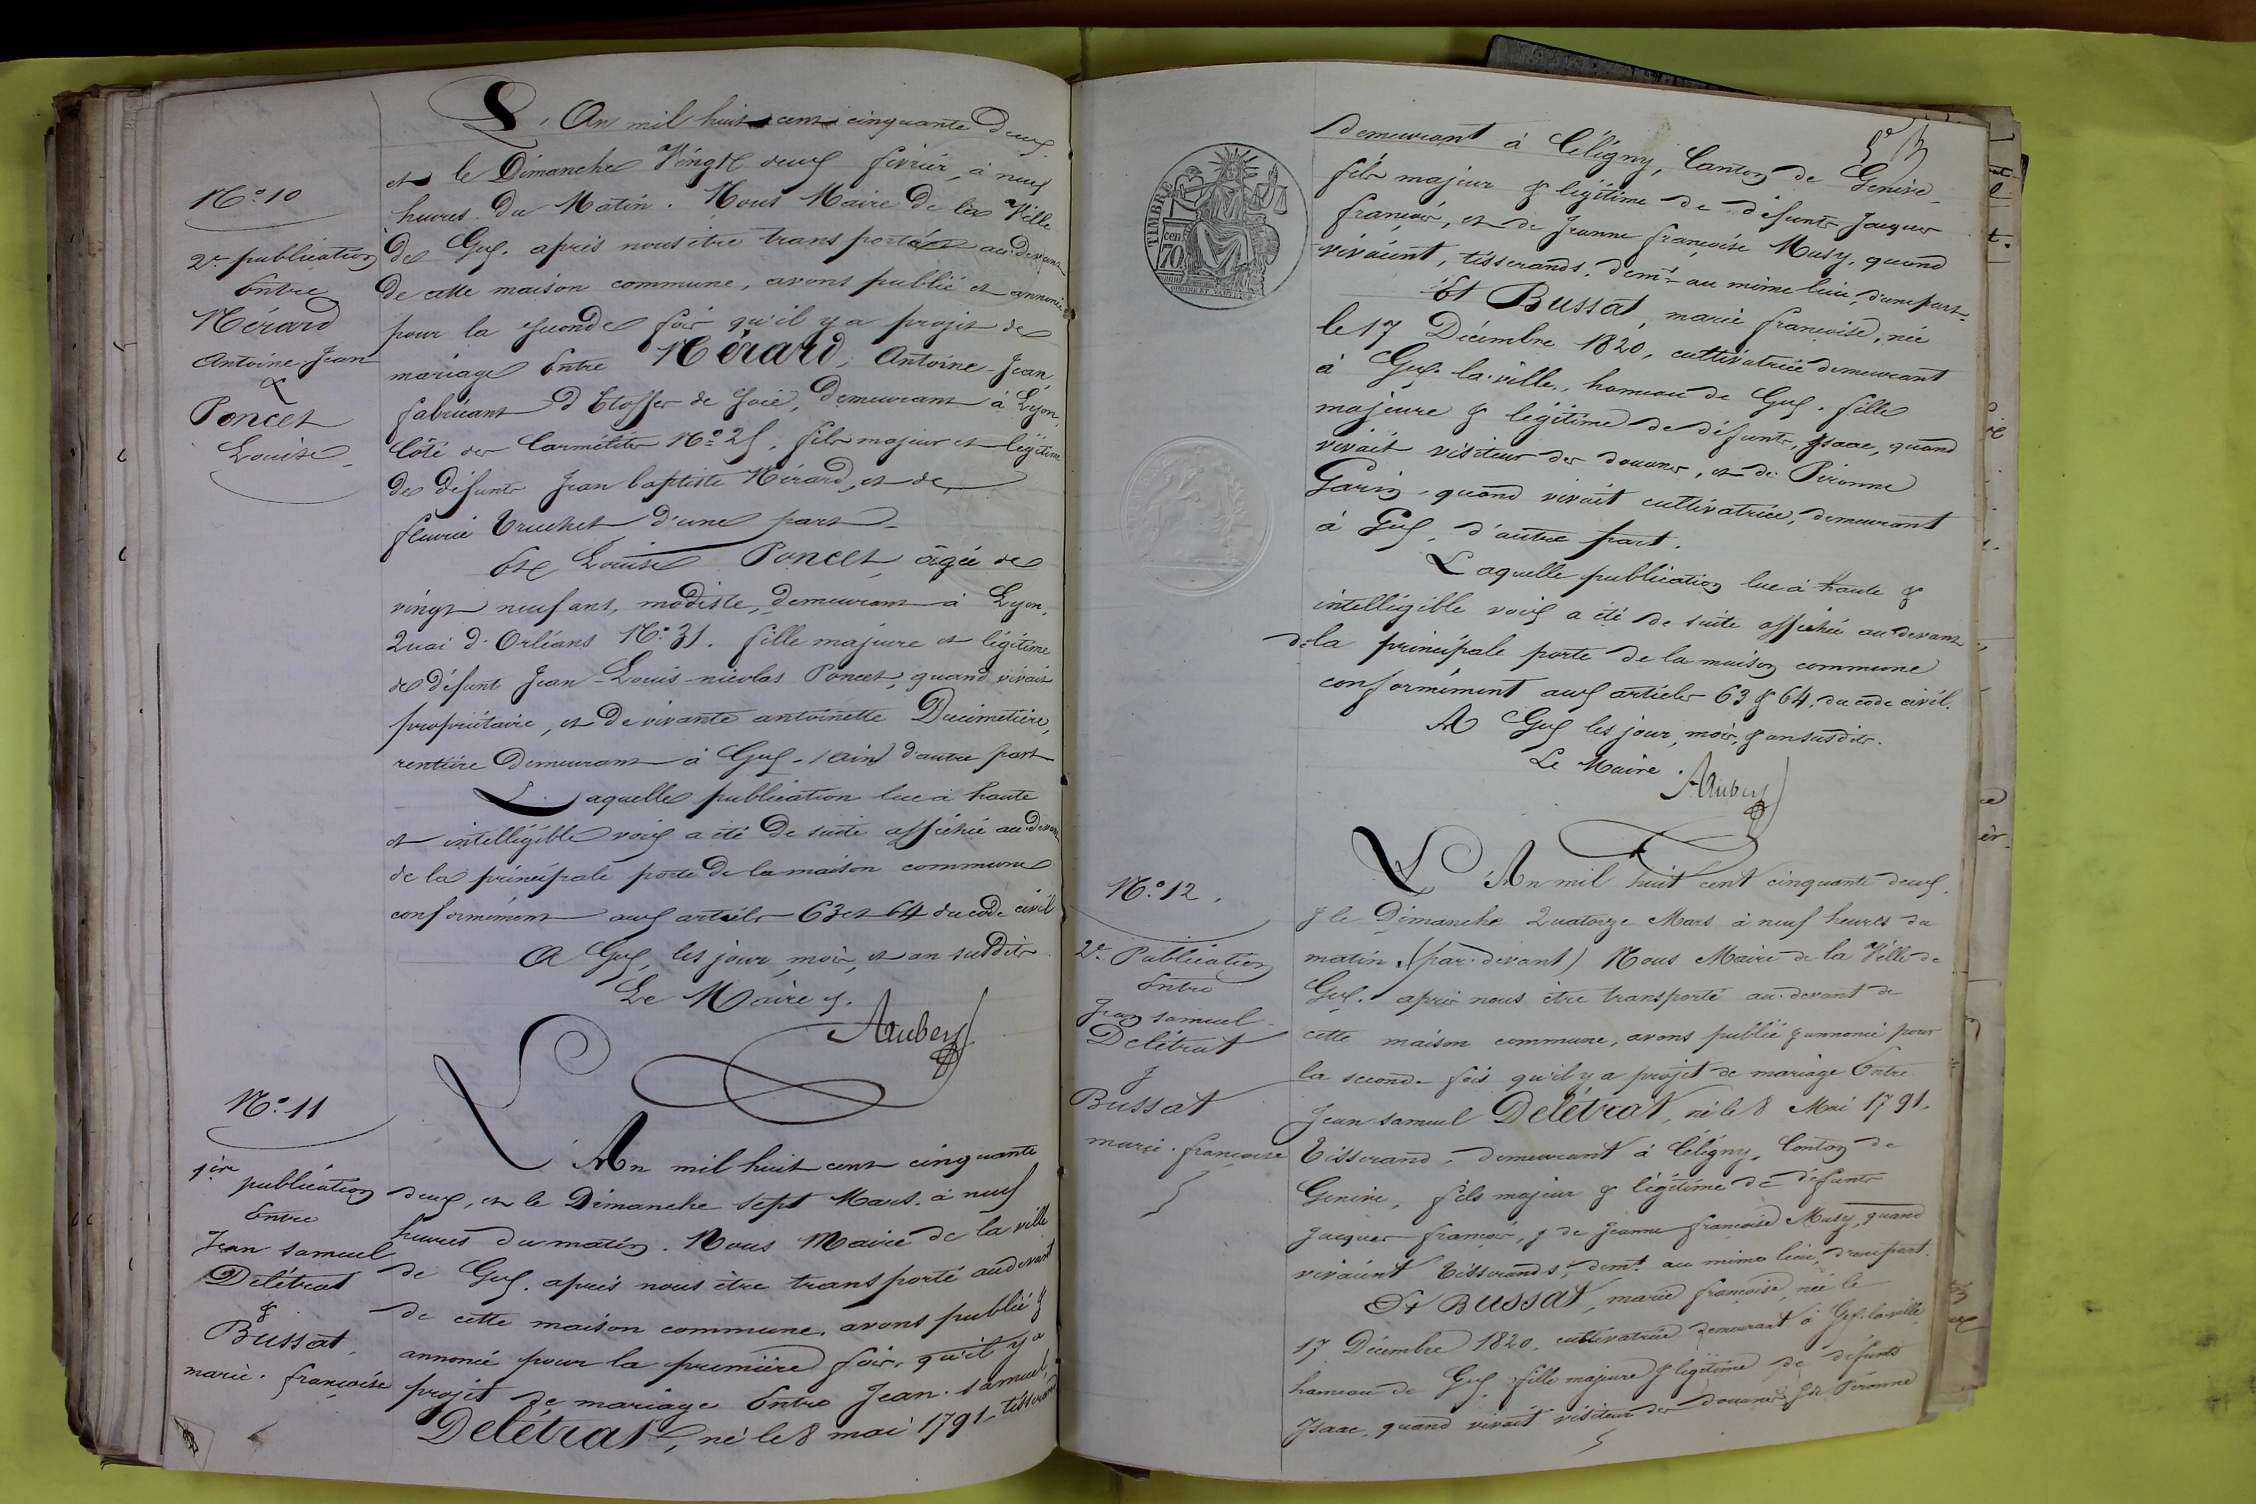 N.º 10
2.e publication
Entre
Mérard
Antoine-Jean
&
Poncet
Louise
L'An mil huit cent cinquante deux
et le Dimanche Vingt deux février, à neuf
heures du Matin. Nous Maire de la Ville
de Gex. après nous être transporté au devant
de cette maison commune, avons publié et annoncé
pour la seconde fois qu'il y a projet de
mariage Entre Mérard, Antoine-Jean,
fabricant d'Etoffes de Soie, Demeurant à Lyon,
Côté des Carmélites N.º 25, fils majeur et légitime
de défunts Jean baptiste Mérard, et de
fleurie Truchet d'une part
Et Louise Poncet, âgée de
vingt neuf ans, modiste, demeurant à Lyon,
Quai d'Orléans N.º 31. fille majeure et légitime
de défunt Jean-Louis-nicolas Poncet, quand vivait
propriétaire, et de vivante antoinette Ducimetière,
rentière Demeurant à Gex (ain) d'autre part
Laquelle publication lue à haute
et intelligible voix a été De suite affichée au devant
de la principale porte De la maison commune
conformément aux articles 63 et 64 du code civil
A Gex, les jour, mois, et an susdits
Le Maire
N.º 11
1.ière publication
Entre
Jean samuel
Delétrat
&
Bussat
marie. françoise
L'An mil huit cent cinquante
deux, et le Dimanche sept Mars. à neuf
heures du matin. Nous Maire de la ville
de Gex. après nous être transporté au devant
de cette maison commune, avons publié &
annoncé pour la première fois, qu'il y a
projet de mariage Entre Jean. samuel,
Delétrat, né le 8 mai 1791, tisserand
TIMBRE
70 cen
demeurant à Céligny, Canton de Genève
fils majeur & légitime de défunts Jacques
françois, et de Jeanne françoise Musy, quand
vivaient, tisserands. dem.t au même lieu, d'une part.
Et Bussat, marie françoise, née
le 17 Décembre 1820, cultivatrice demeurant
à Gex-la-ville, hameau de Gex. fille
majeure & légitime de défunts, Isaac, quand
vivait visiteur des douanes, et de Péronne
Garin, quand vivait cultivatrice, demeurant
à Gex, d'autre part.
Laquelle publication lue à haute &
intelligible voix a été de suite affichée au devant
de la principale porte de la maison commune
conformément aux articles 63 & 64, du code civil.
A Gex les jour, mois, & an susdits.
Le Maire.
N.º 12.
2.e Publication
Entre
Jean samuel
Delétrat
&
Bussat
marie. françoise
L'An mil huit cent cinquante deux.
& le Dimanche Quatorze Mars à neuf heures du
matin (par-devant) Nous Maire de la Ville de
Gex. après nous être transporté au-devant de
cette maison commune, avons publié & annoncé pour
la seconde fois qu'il y a projet de mariage Entre
Jean samuel Delétrat, né le 8 Mai 1791.
Tisserand, demeurant à Céligny, Canton de
Genève, fils majeur & légitime de défunts
Jacques françois, & de Jeanne françoise Musy, quand
vivaient Tisserands, dem.t au même lieu, d'une part.
Et Bussat, marie françoise, née le
17 Décembre 1820. cultivatrice demeurant à Gex-la-ville
hameau de Gex. fille majeure & légitime de défunts
Isaac, quand vivait visiteur des douanes, & de Péronne